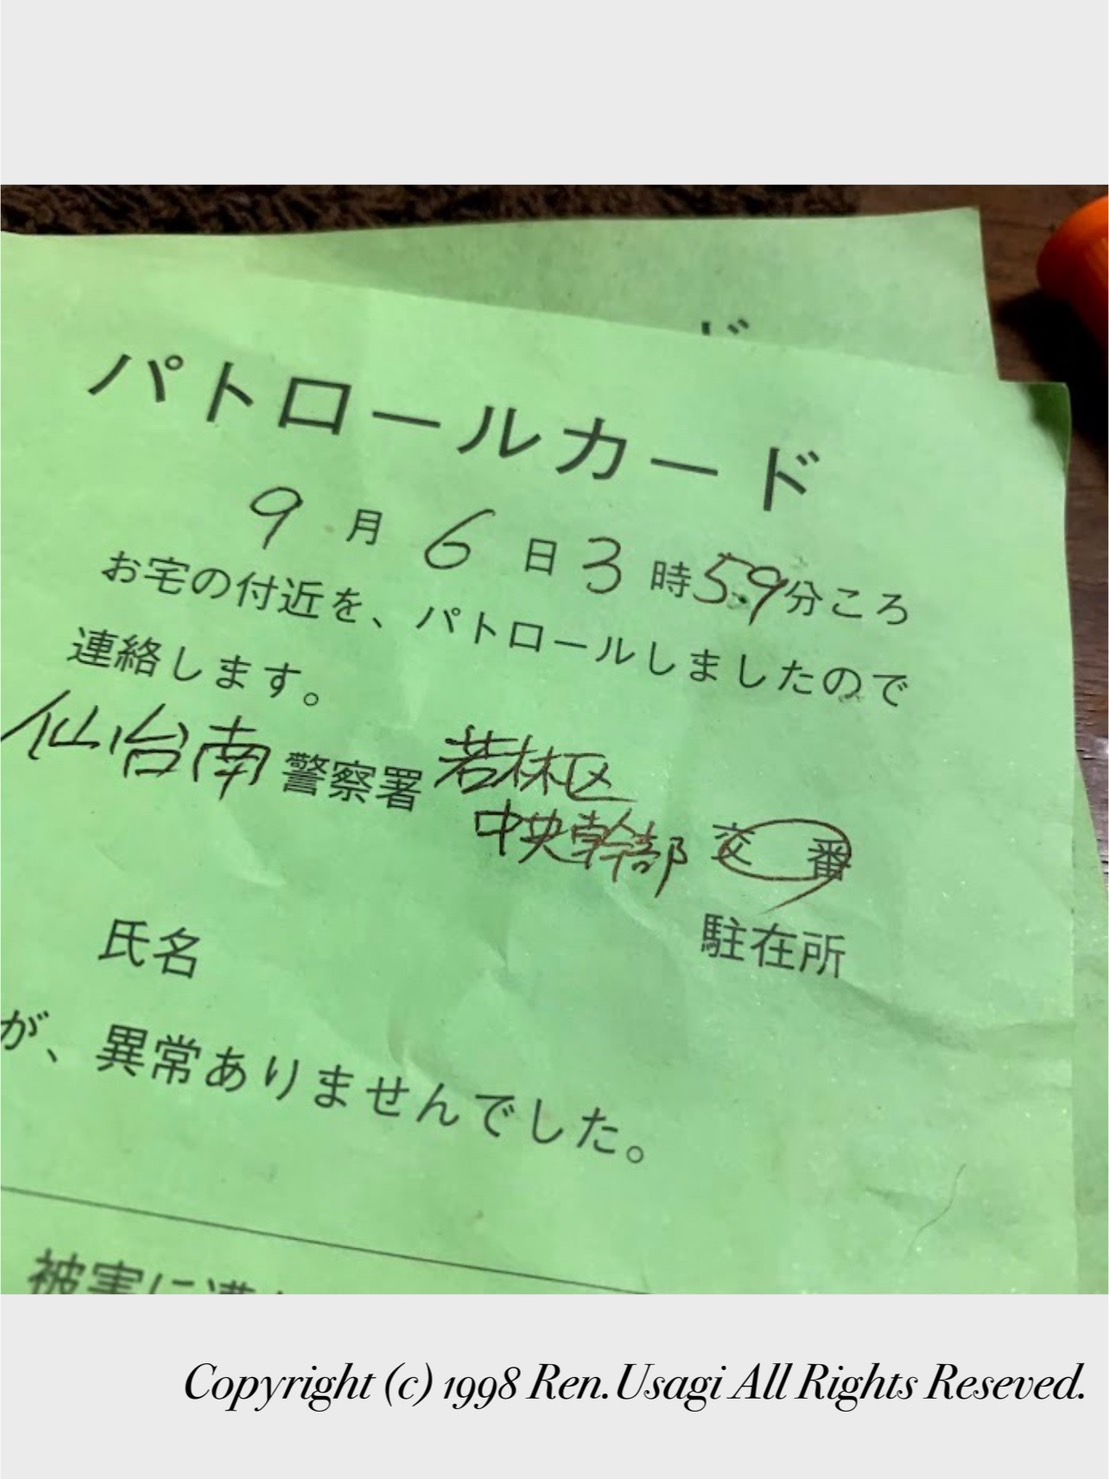 パトロールカード
9月6日3時59分ころ
お宅の付近を、パトロールしましたので
連絡します。
仙台南警察署 若林区
中央幹部 交番
駐在所
氏名
が、異常ありませんでした。
被害に遭
Copyright (c) 1998 Ren.Usagi All Rights Reseved.